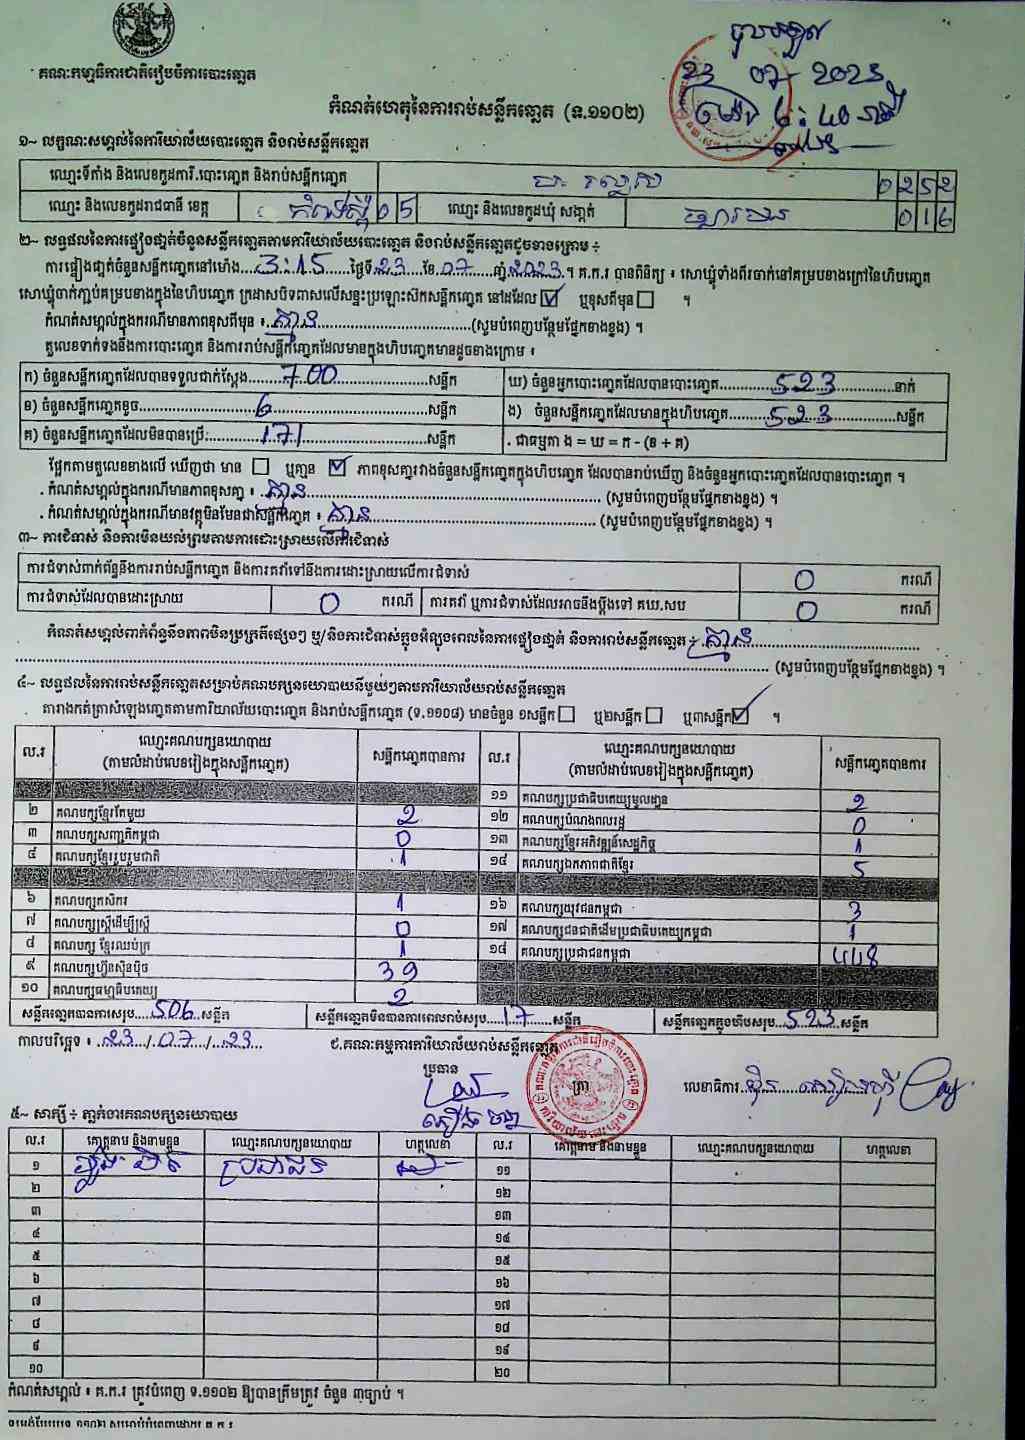 គណៈកម្មាធិការជាតិរៀបចំការបោះឆ្នោត
23 07 2023
កំណត់ហេតុនៃការរាប់សន្លឹកឆ្នោត (ទ.១១០២)
6:40
១~ លក្ខណៈសម្គាល់នៃការិយាល័យបោះឆ្នោត និងរាប់សន្លឹកឆ្នោត
ឈ្មោះទីតាំង និងលេខកូដការិ.បោះឆ្នោត និងរាប់សន្លឹកឆ្នោត 0252
ឈ្មោះ និងលេខកូដរាជធានី ខេត្ត កំពង់ស្ពឺ 05 ឈ្មោះ និងលេខកូដឃុំ សង្កាត់ 016
២~ លទ្ធផលនៃការផ្ទៀងផ្ទាត់ចំនួនសន្លឹកឆ្នោតតាមការិយាល័យបោះឆ្នោត និងរាប់សន្លឹកឆ្នោតដូចខាងក្រោម ៖
ការផ្ទៀងផ្ទាត់ចំនួនសន្លឹកឆ្នោតនៅម៉ោង...3:15...ថ្ងៃទី.23...ខែ.07...ឆ្នាំ.2023.។ គ.ក.រ បានពិនិត្យ ៖ សោឃ្មុំទាំងពីរចាក់នៅគម្របខាងក្រៅនៃហិបឆ្នោត
សោឃ្មុំចាក់ភ្ជាប់គម្របខាងក្នុងនៃហិបឆ្នោត ក្រដាសបិទពាសលើសន្ទះប្រឡោះស៊កសន្លឹកឆ្នោត នៅដដែល ☑ ឬខុសពីមុន ☐ ។
កំណត់សម្គាល់ក្នុងករណីមានភាពខុសពីមុន ៖ គ្មាន (សូមបំពេញបន្ថែមផ្នែកខាងខ្នង) ។
តួលេខទាក់ទងនឹងការបោះឆ្នោត និងការរាប់សន្លឹកឆ្នោតដែលមានក្នុងហិបឆ្នោតមានដូចខាងក្រោម ៖
ក) ចំនួនសន្លឹកឆ្នោតដែលបានទទួលជាក់ស្តែង 700 សន្លឹក ឃ) ចំនួនអ្នកបោះឆ្នោតដែលបានបោះឆ្នោត 523 នាក់
ខ) ចំនួនសន្លឹកឆ្នោតខូច 6 សន្លឹក ង) ចំនួនសន្លឹកឆ្នោតដែលមានក្នុងហិបឆ្នោត 523 សន្លឹក
គ) ចំនួនសន្លឹកឆ្នោតដែលមិនបានប្រើ: 171 សន្លឹក . ជាធម្មតា ង = ឃ = ក - (ខ + គ)
ផ្អែកតាមតួលេខខាងលើ ឃើញថា មាន ☐ ឬគ្មាន ☑ ភាពខុសគ្នារវាងចំនួនសន្លឹកឆ្នោតក្នុងហិបឆ្នោត ដែលបានរាប់ឃើញ និងចំនួនអ្នកបោះឆ្នោតដែលបានបោះឆ្នោត ។
. កំណត់សម្គាល់ក្នុងករណីមានភាពខុសគ្នា ៖ គ្មាន (សូមបំពេញបន្ថែមផ្នែកខាងខ្នង) ។
. កំណត់សម្គាល់ក្នុងករណីមានវត្ថុមិនមែនជាសន្លឹកឆ្នោត ៖ គ្មាន (សូមបំពេញបន្ថែមផ្នែកខាងខ្នង) ។
៣~ ការជំទាស់ និងការមិនយល់ព្រមតាមការដោះស្រាយលើការជំទាស់
ការជំទាស់ពាក់ព័ន្ធនឹងការរាប់សន្លឹកឆ្នោត និងការតវ៉ាទៅនឹងការដោះស្រាយលើការជំទាស់ 0 ករណី
ការជំទាស់ដែលបានដោះស្រាយ 0 ករណី ការតវ៉ា ឬការជំទាស់ដែលអាចនឹងប្តឹងទៅ គឃ.សប 0 ករណី
កំណត់សម្គាល់ពាក់ព័ន្ធនឹងភាពមិនប្រក្រតីផ្សេងៗ ឬ/និងការជំទាស់ក្នុងអំឡុងពេលនៃការផ្ទៀងផ្ទាត់ និងការរាប់សន្លឹកឆ្នោត ៖ គ្មាន
(សូមបំពេញបន្ថែមផ្នែកខាងខ្នង) ។
៤~ លទ្ធផលនៃការរាប់សន្លឹកឆ្នោតសម្រាប់គណបក្សនយោបាយនីមួយៗតាមការិយាល័យរាប់សន្លឹកឆ្នោត
តារាងកត់ត្រាសំឡេងឆ្នោតតាមការិយាល័យបោះឆ្នោត និងរាប់សន្លឹកឆ្នោត (ទ.១១០៨) មានចំនួន ១សន្លឹក ☐ ឬ២សន្លឹក ☐ ឬ៣សន្លឹក ☑ ។
ល.រ ឈ្មោះគណបក្សនយោបាយ (តាមលំដាប់លេខរៀងក្នុងសន្លឹកឆ្នោត) សន្លឹកឆ្នោតបានការ ល.រ ឈ្មោះគណបក្សនយោបាយ (តាមលំដាប់លេខរៀងក្នុងសន្លឹកឆ្នោត) សន្លឹកឆ្នោតបានការ
១១ គណបក្សប្រជាធិបតេយ្យមូលដ្ឋាន 2
២ គណបក្សខ្មែរតែមួយ 2 ១២ គណបក្សបំណងពលរដ្ឋ 0
៣ គណបក្សសញ្ជាតិកម្ពុជា 0 ១៣ គណបក្សខ្មែរអភិវឌ្ឍន៍សេដ្ឋកិច្ច 1
៤ គណបក្សខ្មែររួបរួមជាតិ 1 ១៤ គណបក្សឯកភាពជាតិខ្មែរ 5
៦ គណបក្សកសិករ 1 ១៦ គណបក្សយុវជនកម្ពុជា 3
៧ គណបក្សស្ត្រីដើម្បីស្ត្រី 0 ១៧ គណបក្សជនជាតិដើមប្រជាធិបតេយ្យកម្ពុជា 1
៨ គណបក្ស ខ្មែរឈប់ក្រ 1 ១៨ គណបក្សប្រជាជនកម្ពុជា 448
៩ គណបក្សហ៊្វុនស៊ិនប៉ិច 39
១០ គណបក្សធម្មាធិបតេយ្យ 2
សន្លឹកឆ្នោតបានការសរុប 506 សន្លឹក សន្លឹកឆ្នោតមិនបានការពេលរាប់សរុប 17 សន្លឹក សន្លឹកឆ្នោតក្នុងហិបសរុប 523 សន្លឹក
កាលបរិច្ឆេទ ៖ 23/07/23 ជ.គណៈកម្មការការិយាល័យរាប់សន្លឹកឆ្នោត
ប្រធាន ត្រា លេខាធិការ
៥~ សាក្សី ៖ ភ្នាក់ងារគណបក្សនយោបាយ
ល.រ គោត្តនាម និងនាមខ្លួន ឈ្មោះគណបក្សនយោបាយ ហត្ថលេខា ល.រ គោត្តនាម និងនាមខ្លួន ឈ្មោះគណបក្សនយោបាយ ហត្ថលេខា
១ ប្រជាជន ១១
២ ១២
៣ ១៣
៤ ១៤
៥ ១៥
៦ ១៦
៧ ១៧
៨ ១៨
៩ ១៩
១០ ២០
កំណត់សម្គាល់ ៖ គ.ក.រ ត្រូវបំពេញ ទ.១១០២ ឱ្យបានត្រឹមត្រូវ ចំនួន ៣ច្បាប់ ។